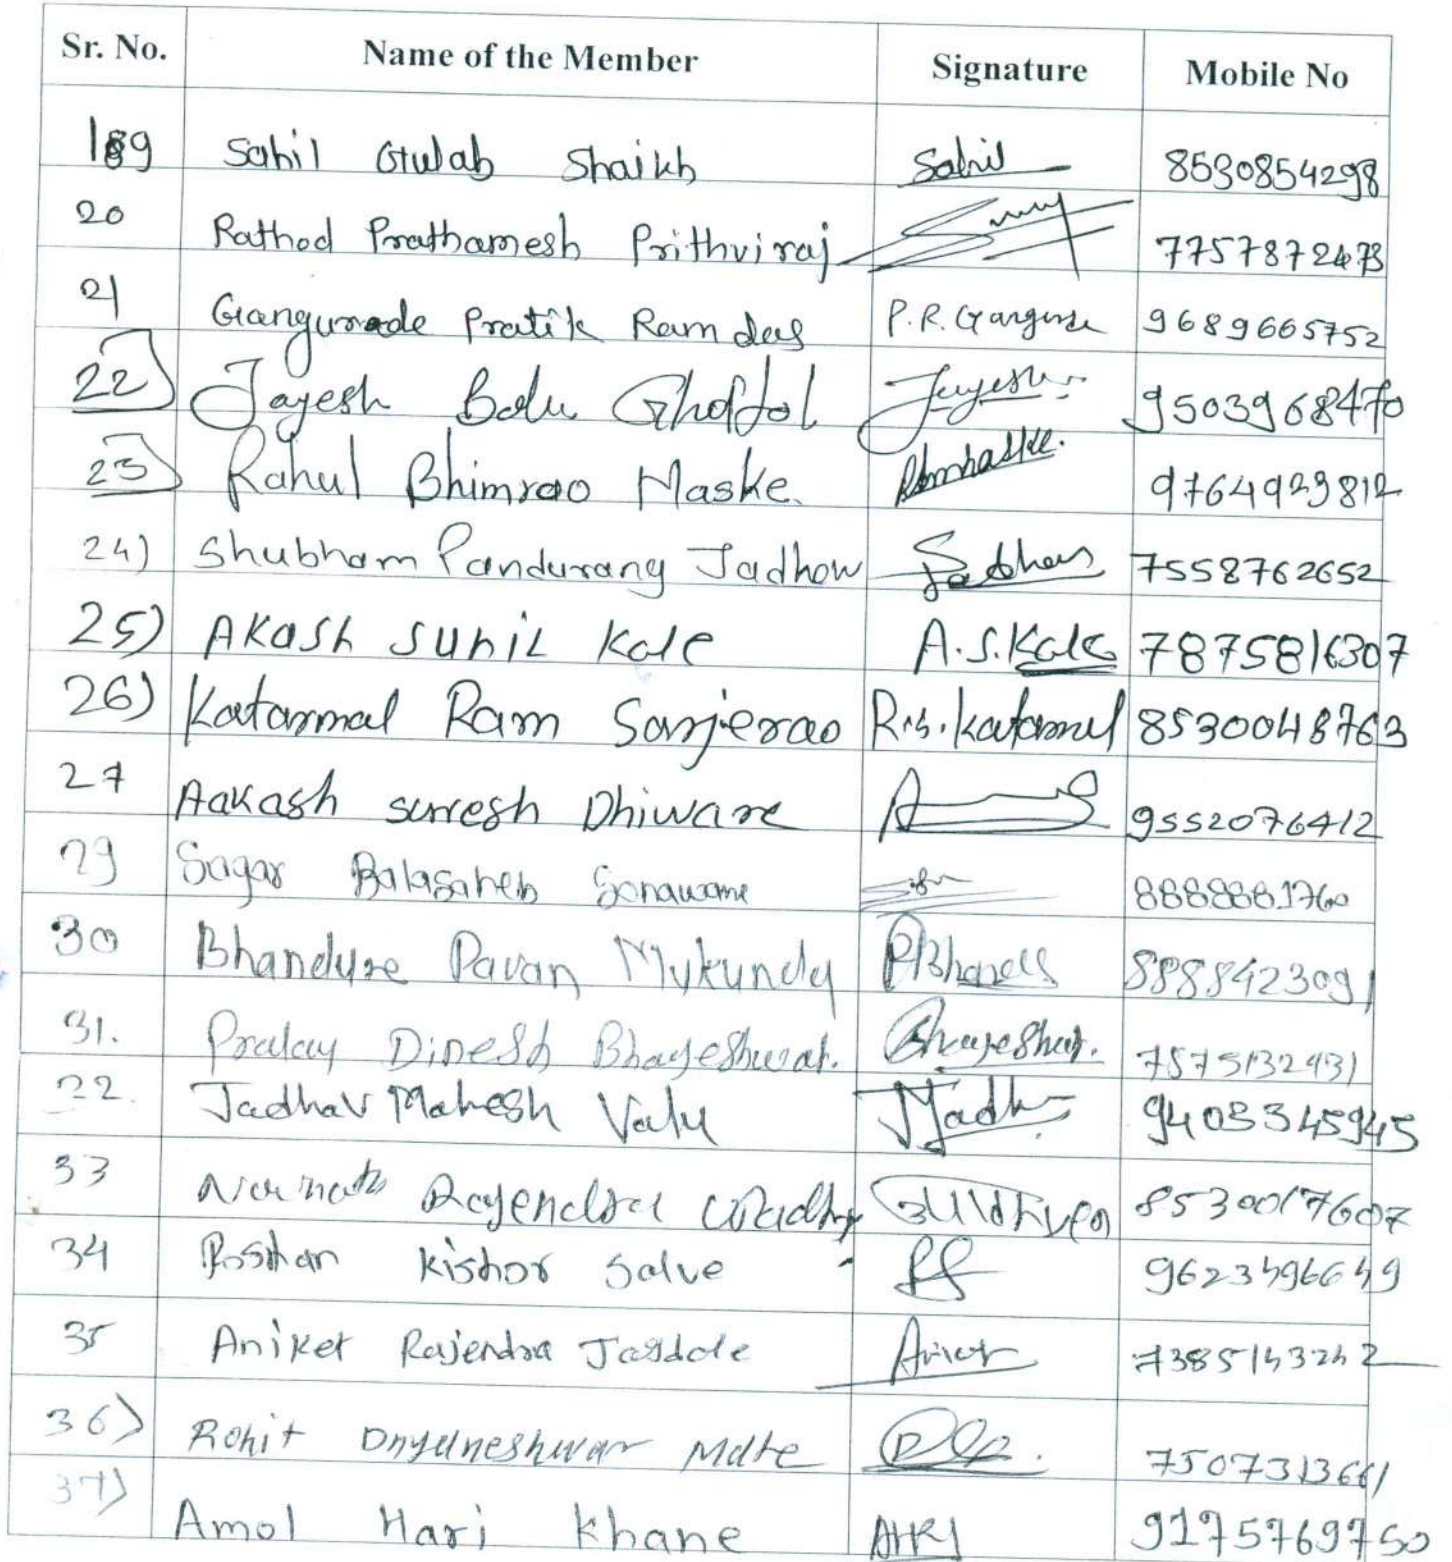 Sr. No. Name of the Member Signature Mobile No
189 Sahil Gulab Shaikh Sahil 8530854298
20 Rathod Prathamesh Prithviraj 7757872473
21 Gangurade Pratik Ramdas P.R. Gangurde 9689665752
22) Jayesh Balu Jayesh 9503968470
23) Rahul Bhimrao Maske. RBmhaske. 9764923812
24) Shubham Pandurang Jadhow Jadhav 7558762652
25) AKash SuniL Kale A.S.Kale 7875816307
26) Katarmal Ram Sarjerao R.S. Katarmal 8530048763
27 Aakash suresh Dhiware 9552076412
29 Sagar Balasaheb Sonawane 8888881760
30 Bhandure Pavan Mukunda PBhande 8888423091
31. Pralay Dinesh Bhageshwar. Bhageshwar. 7575132431
22. Jadhav Mahesh Valu Jadhav 9403345945
33 Navnath Rajendra 8530017607
34 Roshan Kishor Salve RS 9623496649
35 Aniket Rajendra Jagdale Aniket 7385143242
36) Rohit Dnyaneshwar Mate 7507313661
37) Amol Hari Khane AHK 9175769750